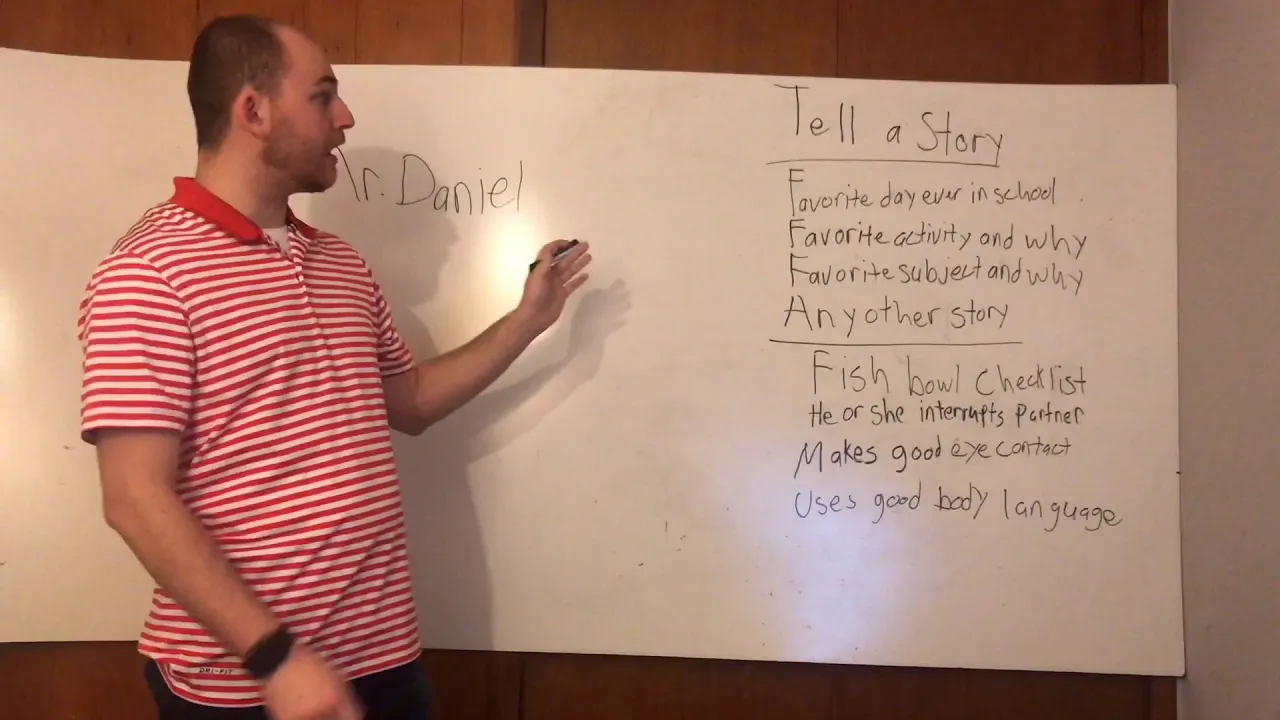 r. Daniel
Tell a Story
Favorite day ever in school
Favorite activity and why
Favorite subject and why
Any other story
Fish bowl checklist
He or she interrupts partner
Makes good eye contact
Uses good body language
DRI-FIT